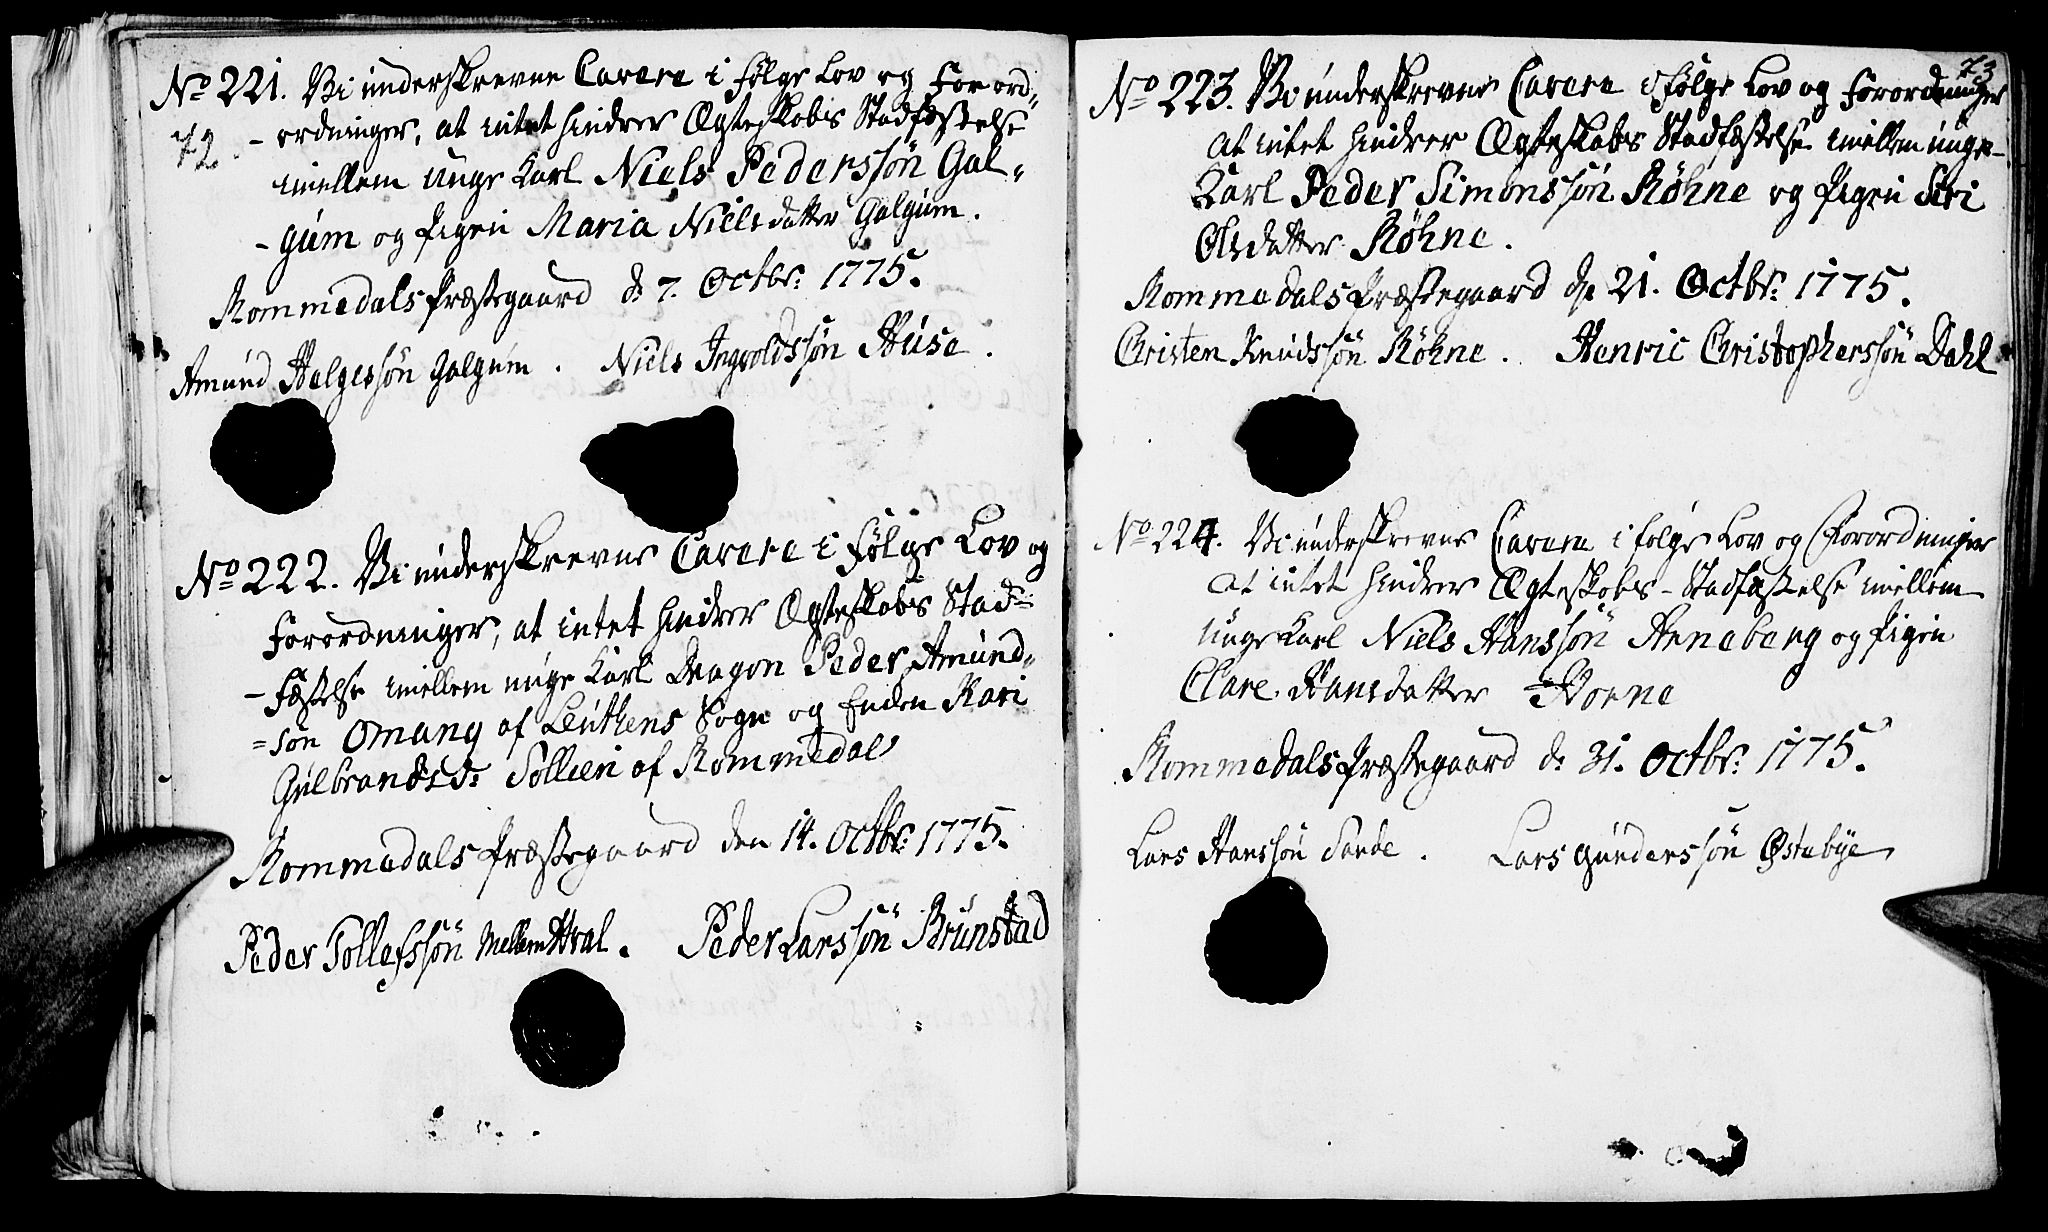 No 221. Vi underskrevne Cavere i følge Lov og For ord„
72. - ordninger, at intet hindrer Ægteskabs Stadfæstelse
imellem unge Karl Niels Pederssøn Gal„
- gum og Pigen Maria Nielsdatter Galgum.
Rommedals Præstegaard d: 7. Octbr: 1775.
Amund Helgessøn Galgum. Niels Ingvoldssøn Huse.
No 222. Vi underskrevne Cavere i følge Lov og
Forordninger, at intet hindrer Ægteskabs Stad=
- fæstelse imellem unge Karl Dragon Peder Amund„
= søn Omang af Leuthens Sogn og Enken Kari
Gulbrandsd: Sollien af Rommedal
Rommedals Præstegaard den 14. Octbr: 1775.
Peder Tollefssøn Mellem Hval. Peder Larssøn Brunstad
73
No 223. Vi underskrevne Cavere i følge Lov og Forordninger
at intet hindrer Ægteskabs Stadfæstelse imellem unge-
Karl Peder Simonssøn Røhne og Pigen Siri
Olsdatter Røhne.
Rommedals Præstegaard d: 21. Octbr: 1775.
Christen Knudssøn Røhne. Henric Christopherssøn Dahl
No 224. Vi underskrevne Cavere i følge Lov og Forordninger
at intet hindrer Ægteskabs - Stadfæstelse imellem
unge Karl Niels Hanssøn Anneberg og Pigen
Clare Hansdatter
Rommedals Præstegaard d: 31. Octbr: 1775.
Lars Hanssøn Sande. Lars Gunderssøn Østebye